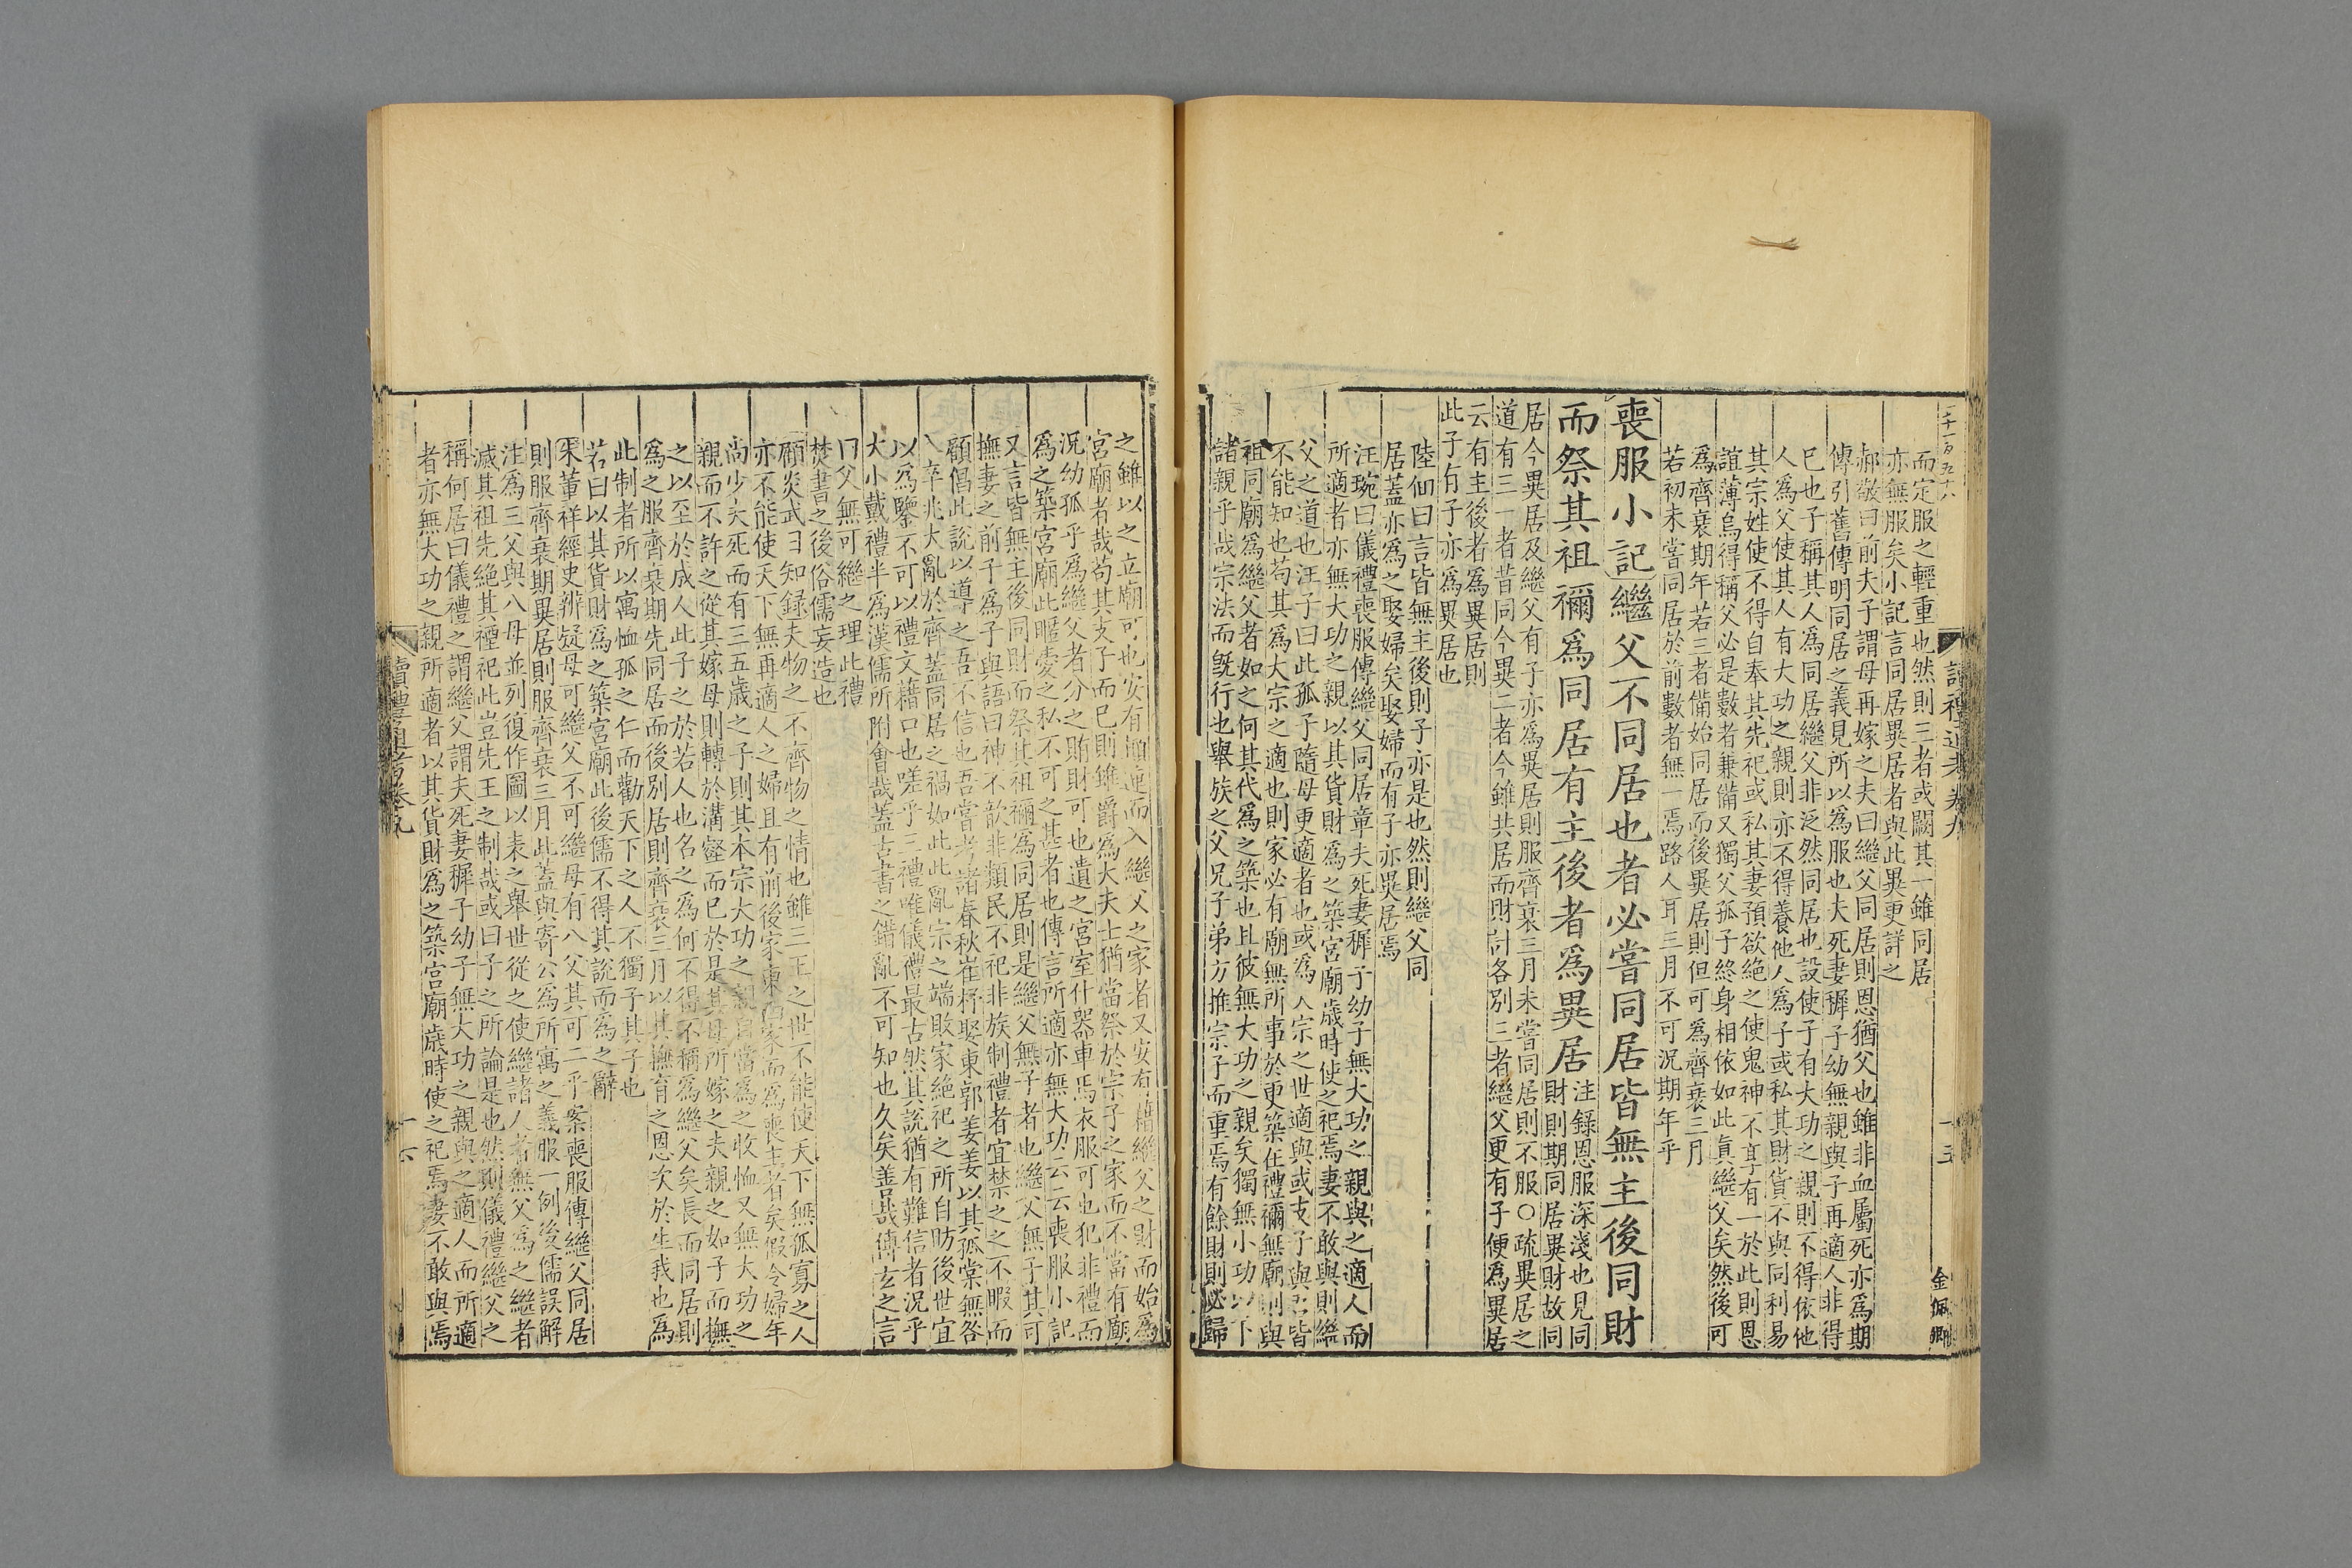 而定服之輕重也然則三者或闕其一雖同居
亦無服矣小記言同居異居者與此異更詳之
郝敬曰前夫子謂母再嫁之夫曰繼父同居則恩猶父也雖非血屬死亦為期
傳引舊傳明同居之義見所以為服也夫死妻穉子幼無親與子再適人非得
已也子稱其人為同居繼父非泛然同居也設使子有大功之親則不得依他
人為父使其人有大功之親則亦不得養他人為子或私其財貨不與同利易
其宗姓使不得自奉其先祀或私其妻預欲絶之使鬼神不享有一於此則恩
誼薄烏得稱父必是數者兼備又獨父孤子終身相依如此真繼父矣然後可
為齊衰期年若三者備始同居而後異居則但可為齊衰三月
若初未嘗同居於前數者無一焉路人耳三月不可況期年乎
喪服小記繼父不同居也者必嘗同居皆無主後同財
而祭其祖禰為同居有主後者為異居
注錄恩服深淺也見同
財則期同居異財故同
居今異居及繼父有子亦為異居則服齊衰三月未嘗同居則不服○疏異居之
道有三一者昔同今異二者今雖共居而財計各別三者繼父更有子便為異居
云有主後者為異居則
此子有子亦為異居也
陸佃曰言皆無主後則子亦是也然則繼父同
居蓋亦為之娶婦矣娶婦而有子亦異居焉
汪琬曰儀禮喪服傳繼父同居章夫死妻穉子幼子無大功之親與之適人而
所適者亦無大功之親以其貨財為之築宮廟歲時使之祀焉妻不敢與則繼
父之道也汪子曰此孤子隨母更適者也或為人宗之世適與或支子與吾皆
不能知也苟其為大宗之適也則家必有廟無所事於更築在禮禰無廟則與
祖同廟為繼父者如之何其代為之築也且彼無大功之親矣獨無小功以下
諸親乎哉宗法而旣行也舉族之父兄子弟方推宗子而重焉有餘財則必歸
之雖以之立廟可也安有迺連而入繼父之家者又安有藉繼父之財而始為
宮廟者哉苟其支子而已則雖爵為大夫士猶當祭於宗子之家而不當有廟
況幼孤乎為繼父者分之賄財可也遺之宮室什器車馬衣服可也犯非禮而
為之築宮廟此暱愛之私不可之甚者也傳言所適亦無大功云云喪服小記
又言皆無主後同財而祭其祖禰為同居則是繼父無子者也繼父無子其可
撫妻之前子為子與語曰神不歆非類民不祀非族制禮者宜禁之之不暇而
顧倡此說以導之吾不信也吾嘗考諸春秋崔杼娶東郭姜姜以其孤棠無咎
入卒兆大亂於齊蓋同居之禍如此此亂宗之端敗家絶祀之所自昉後世宜
以為鑒不可以禮文藉口也嗟乎三禮唯儀禮最古然其說猶有難信者況乎
大小戴禮半為漢儒所附會哉蓋古書之錯亂不可知也久矣善哉傅玄之言
曰父無可繼之理此禮
焚書之後俗儒妄造也
顧炎武日知錄夫物之不齊物之情也雖三王之世不能使天下無孤寡之人
亦不能使天下無再適人之婦且有前後家東西家而為喪主者矣假令婦年
尚少夫死而有三五歲之子則其本宗大功之親自當為之收恤又無大功之
親而不許之從其嫁母則轉於溝壑而已於是其母所嫁之夫親之如子而撫
之以至於成人此子之於若人也名之為何不得不稱為繼父矣長而同居則
為之服齊衰期先同居而後別居則齊衰三月以其撫育之恩次於生我也為
此制者所以寓恤孤之仁而勸天下之人不獨子其子也
若曰以其貨財為之築宮廟此後儒不得其說而為之辭
朱董祥經史辨疑母可繼父不可繼母有八父其可二乎案喪服傳繼父同居
則服齊衰期異居則服齊衰三月此蓋與寄公為所寓之義服一例後儒誤解
注為三父與八母並列復作圖以表之舉世從之使繼諸人者無父為之繼者
滅其祖先絶其禋祀此豈先王之制哉或曰子之所論是也然則儀禮繼父之
稱何居曰儀禮之謂繼父謂夫死妻穉子幼子無大功之親與之適人而所適
者亦無大功之親所適者以其貨財為之築宮廟歲時使之祀焉妻不敢與焉
讀禮通考卷九
金佩卿